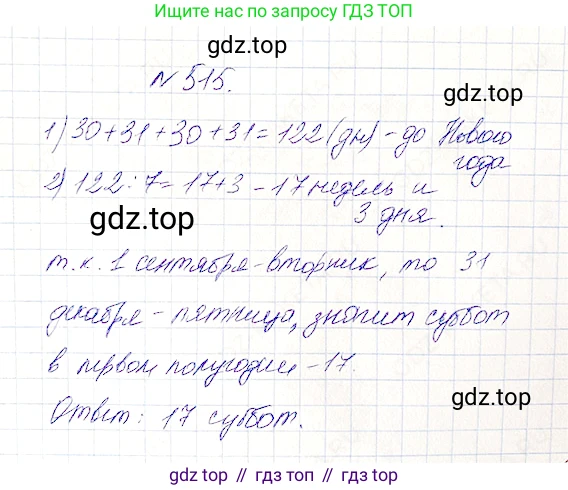 Ищите нас по запросу ГДЗ ТОП
gdz.top
№ 515.
1) 30+31+30+31=122 (дн) - до Нового
года
2) 122:7=17+3 - 17 недель и
3 дня.
gdz.top
т.к. 1 сентября - вторник, то 31
декабря - пятница, значит суббот
в первом полугодии - 17.
gdz.top
Ответ: 17 суббот.
gdz.top // гдз.топ // гдз топ